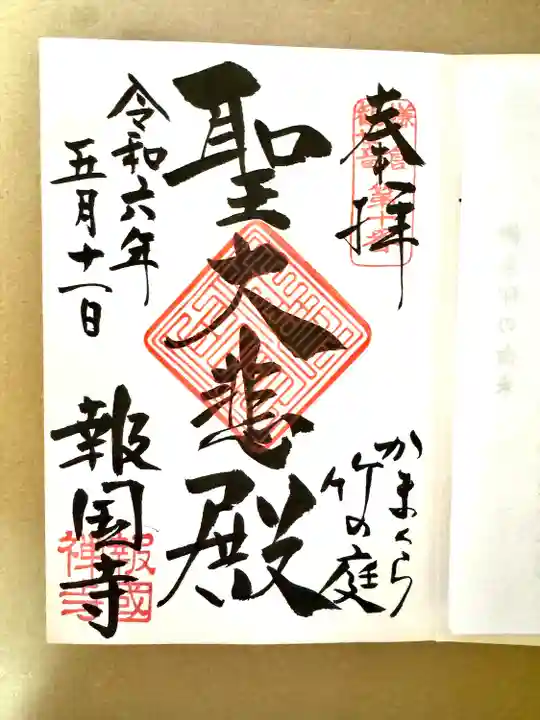 奉拝
かまくら
竹の庭
聖大悲殿
令和六年
五月十一日
報国寺
報國
禅寺